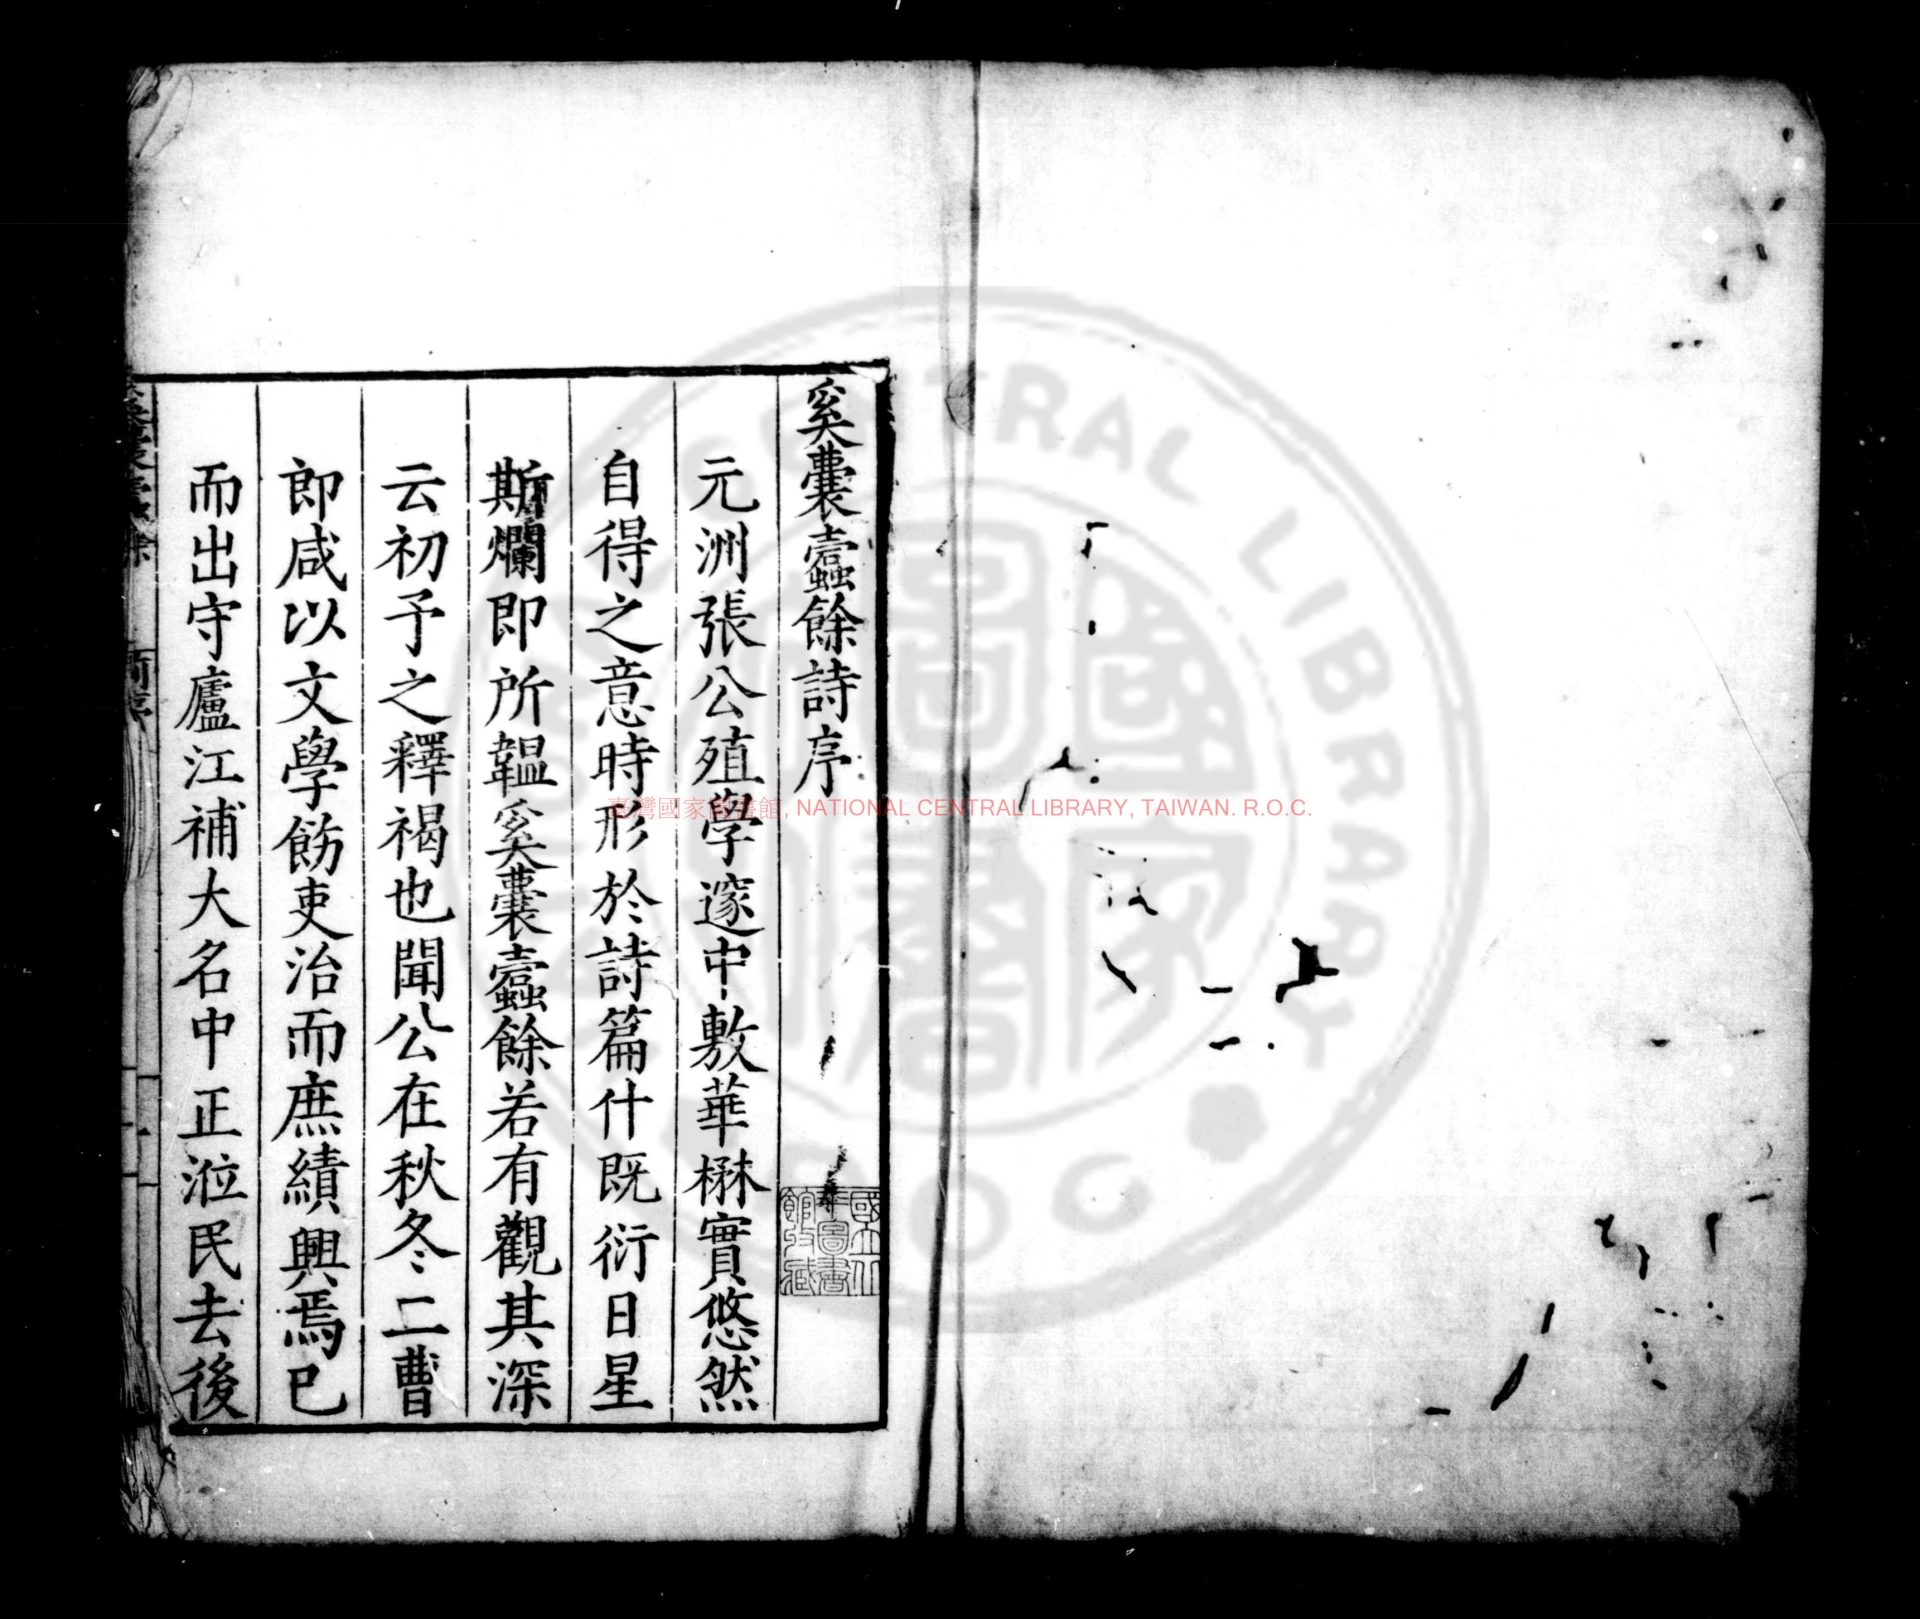 奚囊蠹餘詩序
元洲張公殖學邃中敷華楙實悠然
自得之意時形於詩篇什既衍日星
斯爛即所韞奚囊蠹餘若有觀其深
云初予之釋褐也聞公在秋冬二曹
即咸以文學飭吏治而庶績興焉已
而出守廬江補大名中正涖民去後
國立北
平圖書
館收藏
臺灣國家圖書館, NATIONAL CENTRAL LIBRARY, TAIWAN. R.O.C.
CENTRAL LIBRARY